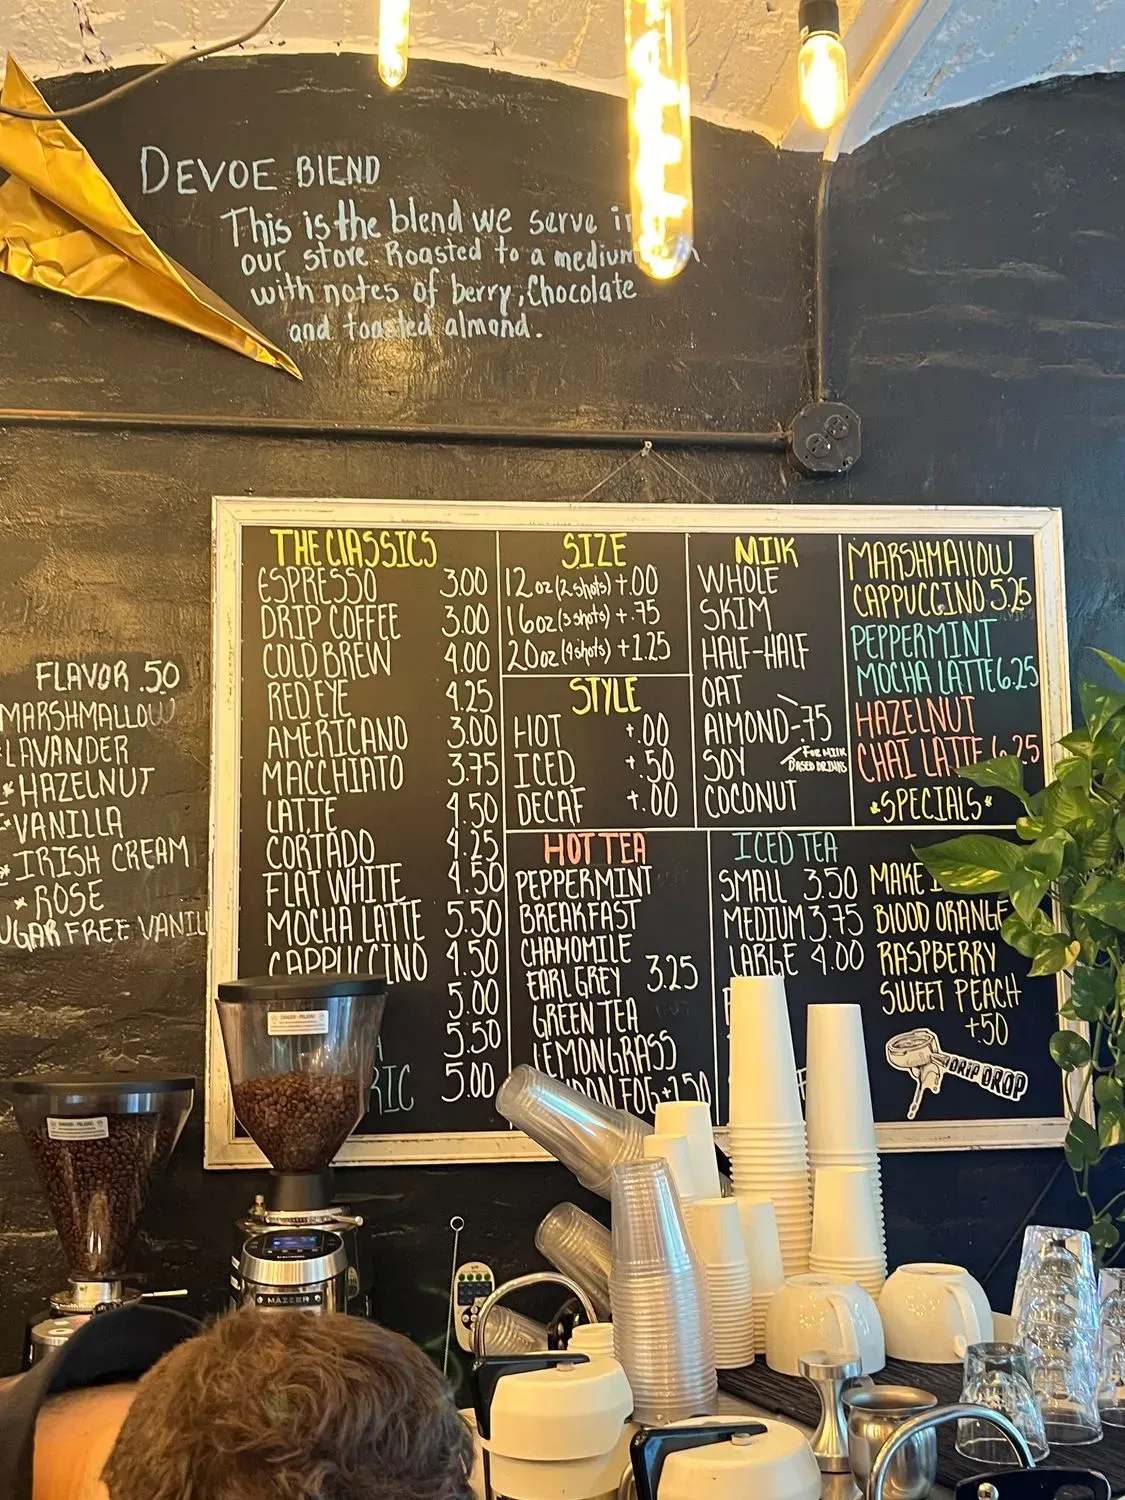 DEVOE BLEND
This is the blend we serve in
our store Roasted to a medium
with notes of berry, Chocolate
and toasted almond.
FLAVOR .50
MARSHMALLOW
LAVANDER
* HAZELNUT
VANILLA
* IRISH CREAM
* ROSE
VANIL
THE CLASSICS
ESPRESSO 3.00
DRIP COFFEE 3.00
COLD BREW 4.00
RED EYE 4.25
AMERICANO 3.00
MACCHIATO 3.75
LATTE 4.50
CORTADO 4.25
FLAT WHITE 4.50
MOCHA LATTE 5.50
CAPPUCCINO 4.50
5.00
5.50
RIC 5.00
SIZE
12oz (2 shots) +.00
16oz (3 shots) +.75
20oz (4 shots) +1.25
STYLE
HOT +.00
ICED +.50
DECAF +.00
MILK
WHOLE
SKIM
HALF-HALF
OAT
ALMOND -.75
SOY
COCONUT
FOR MILK
BASED DRINKS
MARSHMALLOW
CAPPUCCINO 5.25
PEPPERMINT
MOCHA LATTE 6.25
HAZELNUT
CHAI LATTE 6.25
*SPECIALS*
HOT TEA
PEPPERMINT
BREAKFAST
CHAMOMILE
EARL GREY 3.25
GREEN TEA
LEMONGRASS
FOG +1.50
ICED TEA
SMALL 3.50
MEDIUM 3.75
LARGE 4.00
MAKE
BLOOD ORANGE
RASPBERRY
SWEET PEACH
+50
DRIP DROP
DANGER - PELIGRO
DANGER - PELIGRO
MAZZER